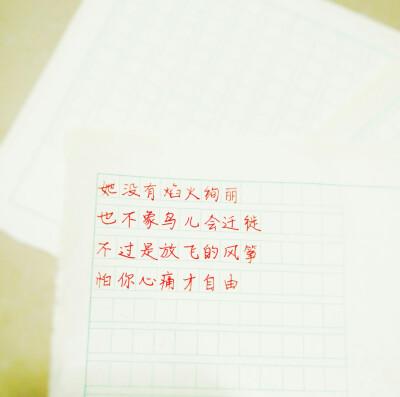 她没有焰火绚丽
也不象鸟儿会迁徙
不过是放飞的风筝
怕你心痛才自由